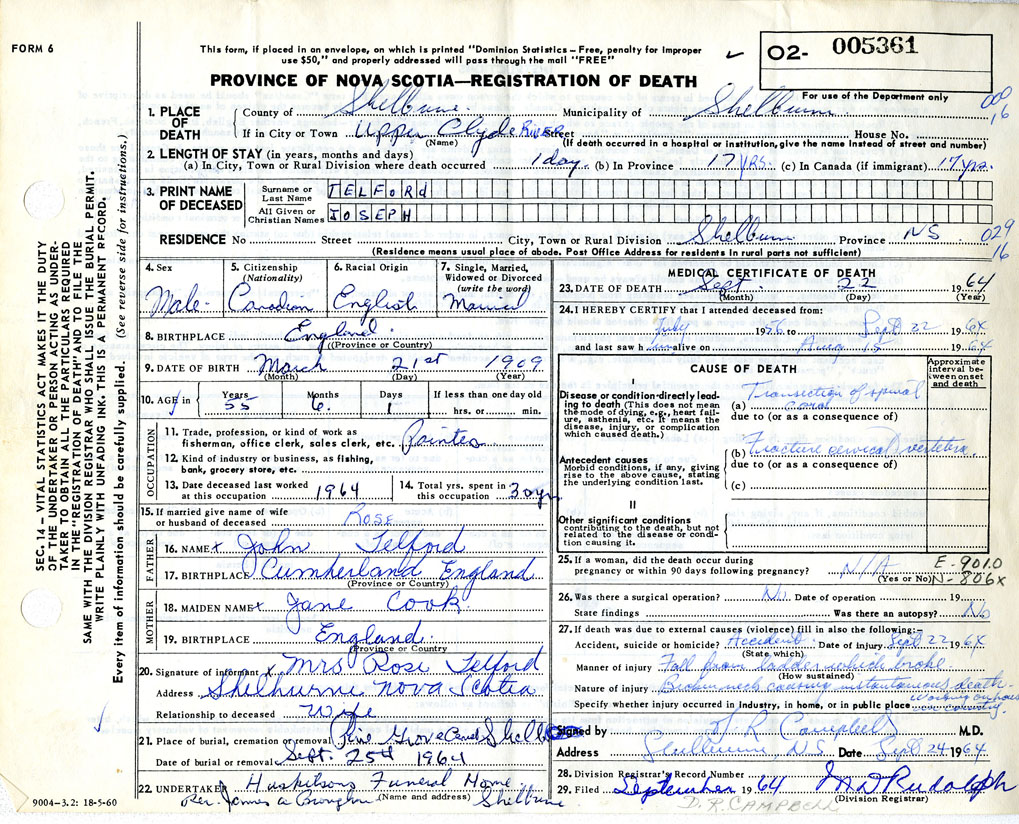 FORM 6
This form, if placed in an envelope, on which is printed "Dominion Statistics – Free, penalty for improper
use $50," and properly addressed will pass through the mail "FREE"
O2- 005361
For use of the Department only
PROVINCE OF NOVA SCOTIA—REGISTRATION OF DEATH
SEC. 14 – VITAL STATISTICS ACT MAKES IT THE DUTY
OF THE UNDERTAKER OR PERSON ACTING AS UNDER-
TAKER TO OBTAIN ALL THE PARTICULARS REQUIRED
IN THE "REGISTRATION OF DEATH" AND TO FILE THE
SAME WITH THE DIVISION REGISTRAR WHO SHALL ISSUE THE BURIAL PERMIT.
WRITE PLAINLY WITH UNFADING INK. THIS IS A PERMANENT RECORD.
Every item of information should be carefully supplied. (See reverse side for instructions.)
1. PLACE OF DEATH
County of Shelburne. Municipality of Shelburn
009
16
If in City or Town Upper Clyde RIVER Street House No.
(Name) (If death occurred in a hospital or institution, give the name instead of street and number)
2. LENGTH OF STAY (in years, months and days)
(a) In City, Town or Rural Division where death occurred 1 day. (b) In Province 17 YRS. (c) In Canada (if immigrant) 17 yrs.
3. PRINT NAME OF DECEASED
Surname or Last Name TELFORd
All Given or Christian Names JOSEPH
RESIDENCE No Street City, Town or Rural Division Shelburn Province NS
029
16
(Residence means usual place of abode. Post Office Address for residents in rural parts not sufficient)
4. Sex Male
5. Citizenship (Nationality) Canadian
6. Racial Origin English
7. Single, Married, Widowed or Divorced (write the word) Married
8. BIRTHPLACE England.
(Province or Country)
9. DATE OF BIRTH March 21st 1909
(Month) (Day) (Year)
10. AGE Years 55 Months 6 Days 1 If less than one day old
hrs. or min.
OCCUPATION
11. Trade, profession, or kind of work as
fisherman, office clerk, sales clerk, etc. Painter
12. Kind of industry or business, as fishing,
bank, grocery store, etc.
13. Date deceased last worked
at this occupation 1964
14. Total yrs. spent in
this occupation 30 yrs
15. If married give name of wife
or husband of deceased ROSE
FATHER
16. NAME x John Telford
17. BIRTHPLACE Cumberland England
(Province or Country)
MOTHER
18. MAIDEN NAME x Jane Cook
19. BIRTHPLACE England.
(Province or Country)
20. Signature of informant x Mrs Rose Telford
Address Shelburne Nova Scotia
Relationship to deceased Wife
21. Place of burial, cremation or removal Pine Grove Cem Shelb
Date of burial or removal Sept. 25th 1964
22. UNDERTAKER Huskilsons Funeral Home
(Name and address) Shelburne
Rev. James A
9004–3.2: 18-5-60
MEDICAL CERTIFICATE OF DEATH
23. DATE OF DEATH Sept. 22 1964
(Month) (Day) (Year)
24. I HEREBY CERTIFY that I attended deceased from:
July 1956 to Sept 22 1964
and last saw h im alive on Aug 15 1964
CAUSE OF DEATH
Approximate interval between onset and death
I
Disease or condition directly lead-
ing to death (This does not mean
the mode of dying, e.g., heart fail-
ure, asthenia, etc. It means the
disease, injury, or complication
which caused death.)
(a) Transection of spinal cord
due to (or as a consequence of)
Antecedent causes
Morbid conditions, if any, giving
rise to the above cause, stating
the underlying condition last.
(b) Fracture cervical vertebra
due to (or as a consequence of)
(c)
II
Other significant conditions
contributing to the death, but not
related to the disease or condi-
tion causing it.
25. If a woman, did the death occur during
pregnancy or within 90 days following pregnancy? N/A
(Yes or No)
E-901.0
N-806x
26. Was there a surgical operation? No Date of operation 19
State findings Was there an autopsy? No
27. If death was due to external causes (violence) fill in also the following:–
Accident, suicide or homicide? Accident Date of injury Sept 22 1964
(State which)
Manner of injury Fall from ladder which broke
(How sustained)
Nature of injury Broken neck causing instantaneous death.
Specify whether injury occurred in industry, in home, or in public place working on house
Signed by R Campbell M.D.
Address Shelburne, N.S. Date Sept 24 1964
28. Division Registrar's Record Number
29. Filed September 1964 M D Rudolph
(Division Registrar)
D. R. CAMPBELL